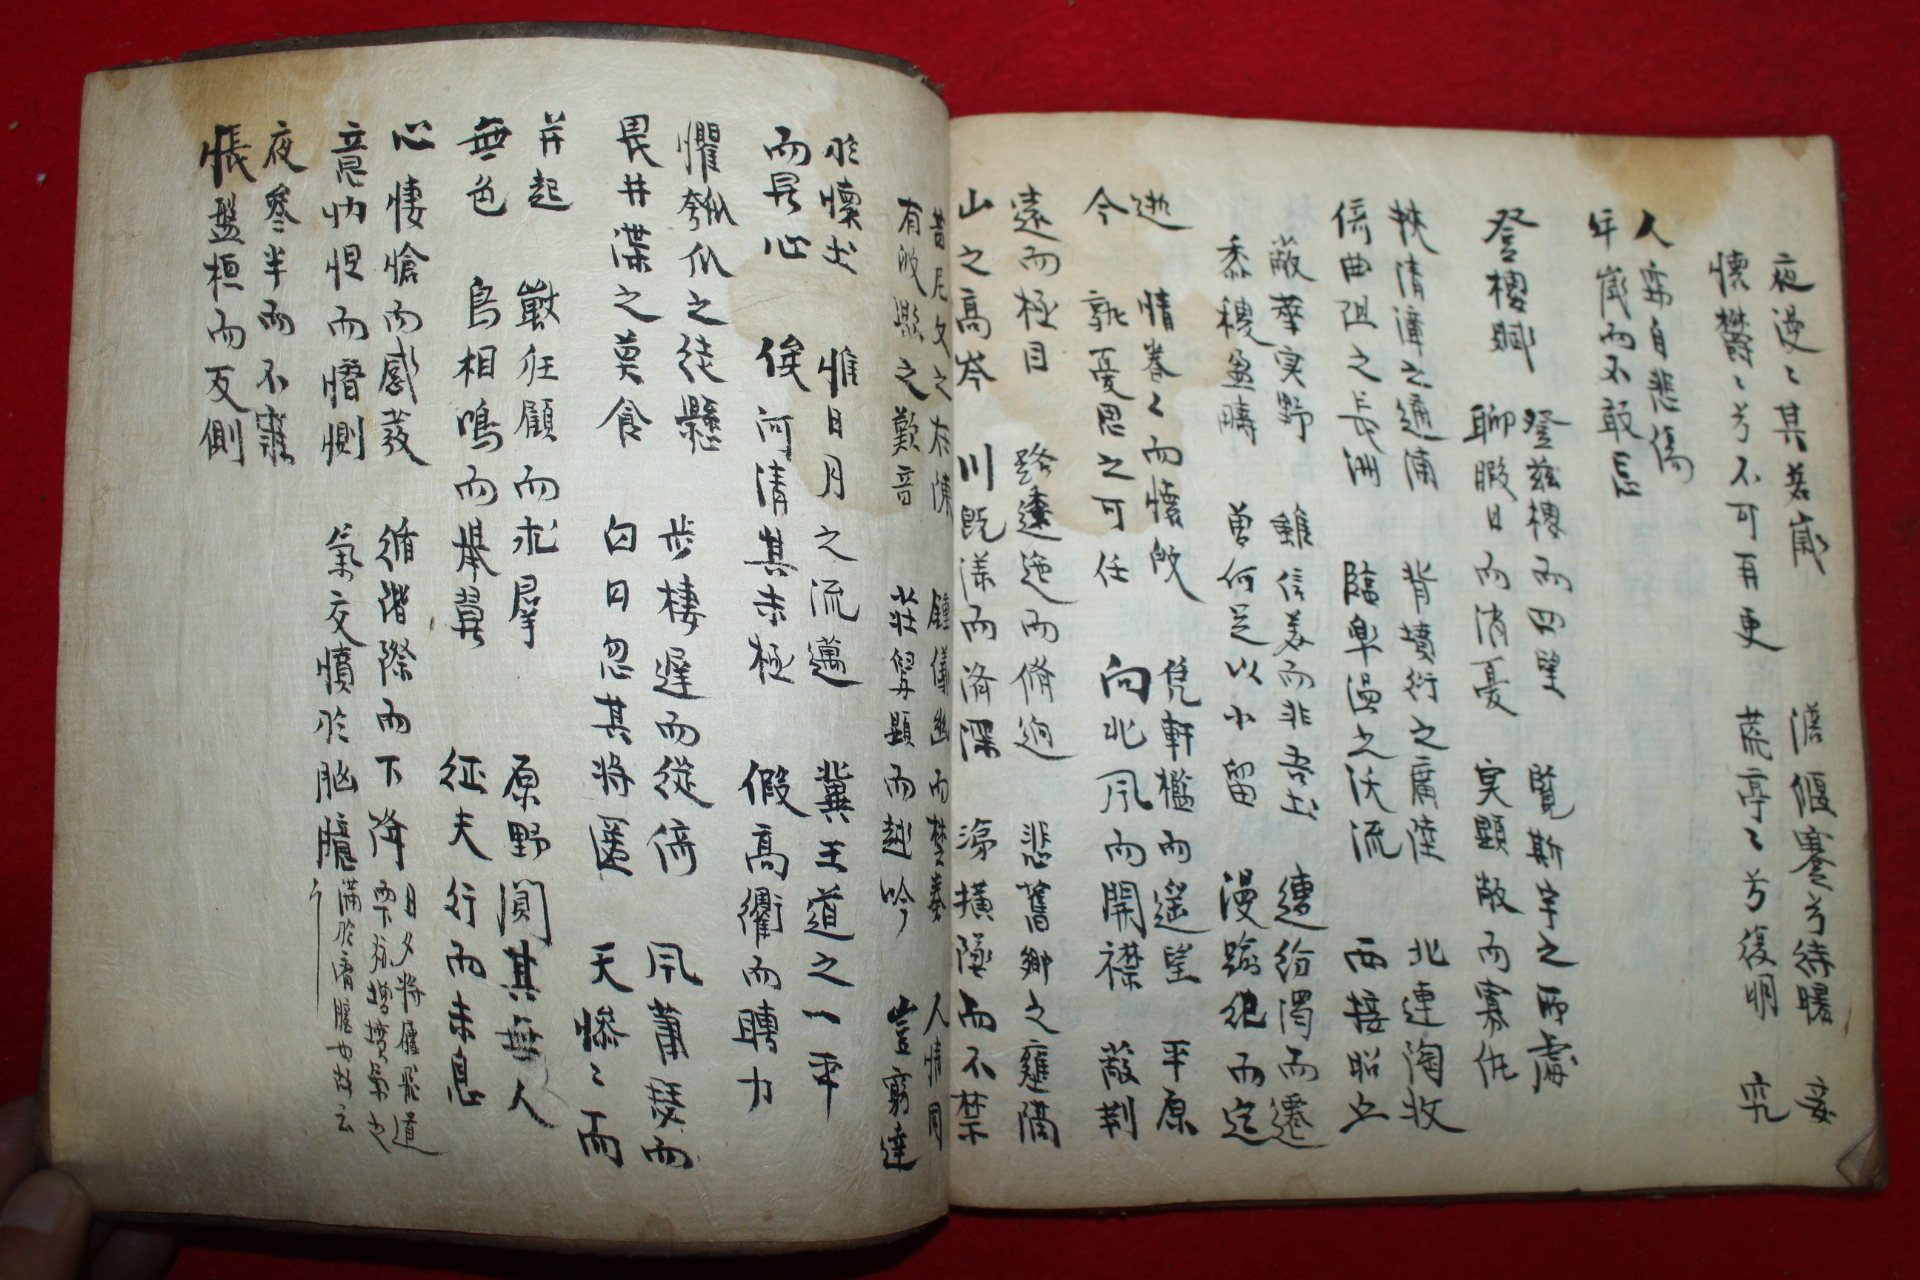 夜漫〻其若歲
懷欝〻兮不可再更
澹偃蹇兮待曙
荒亭〻兮復明
妾
究
人竊自悲傷
年歲而不敢忘
登樓賦
登茲樓而四望
聊暇日而消憂
覽斯宇之所處
实顕敞而寡仇
挾清漳之通浦
倚曲沮之長洲
背墳衍之廣陸
臨皐濕之沃流
北連陶牧
西接昭丘
蔽華实野
黍稷盈疇
雖信美而非吾土
曾何足以小留
遭紛濁而遷
漫踰紀而迄
逝
今
情眷〻而懷皈
孰憂思之可任
凭軒檻而遥望
向北风而開襟
平原
蔽荊
遠而極目
山之高岑
路逶迤而脩逈
川既漾而済深
悲舊鄉之壅隔
涕橫墜而不禁
昔尼父之在陳
有皈歟之歎音
鍾儀幽而楚奏
莊舃顕而越吟
人情同
豈窮達
於懷土
而异心
惟日月之流邁
俟河清其未極
冀王道之一平
假高衢而騁力
懼匏瓜之徒懸
畏井渫之莫食
步棲遲而徙倚
白日忽其将匿
风蕭瑟而
天慘〻而
并起
無色
獸狂顧而求羣
鳥相鳴而擧翼
原野闃其無人
征夫行而未息
心悽愴而感發
意忉怛而憯惻
循階除而下降
氣交憤於胸臆
夜參半而不寐
悵盤桓而反側